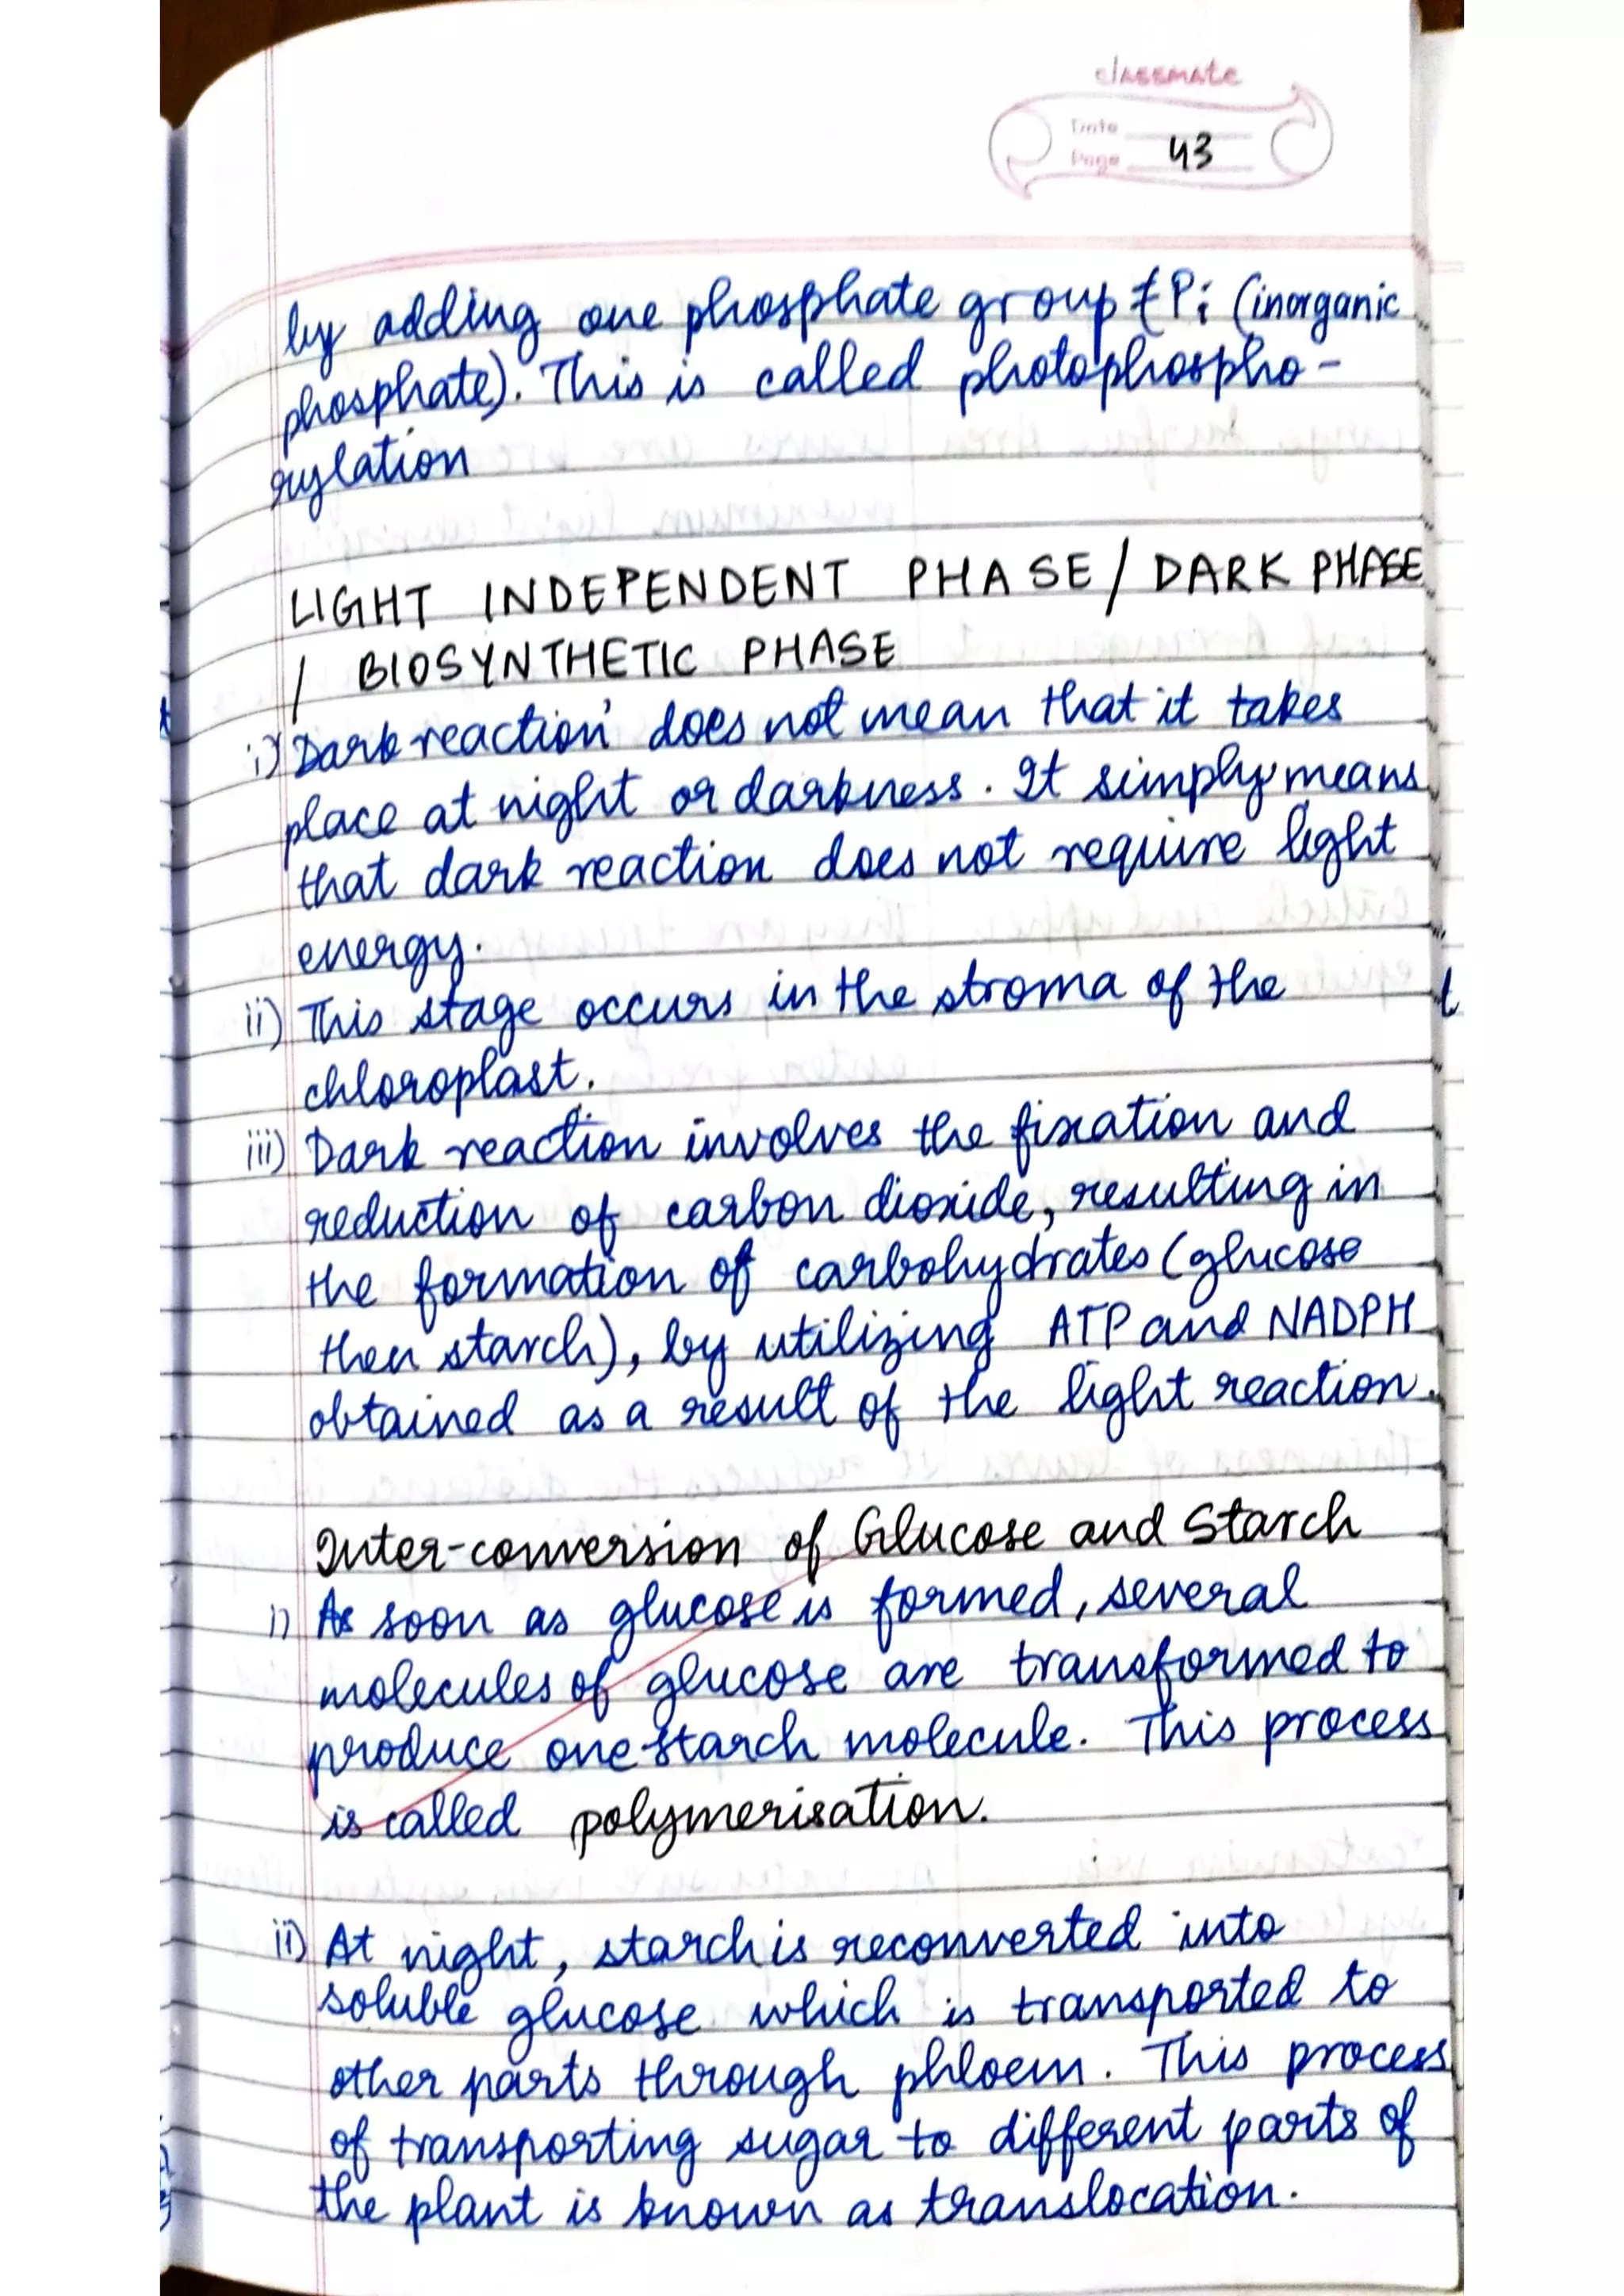 classmate
Date
Page 43
by adding one phosphate group Pi (inorganic
phosphate). This is called photophospho-
rylation
LIGHT INDEPENDENT PHASE / DARK PHASE
/ BIOSYNTHETIC PHASE
i) 'Dark reaction' does not mean that it takes
place at night or darkness. It simply means
that dark reaction does not require light
energy.
ii) This stage occurs in the stroma of the
chloroplast.
iii) Dark reaction involves the fixation and
reduction of carbon dioxide, resulting in
the formation of carbohydrates (glucose
then starch), by utilizing ATP and NADPH
obtained as a result of the light reaction.
Inter-conversion of Glucose and Starch
i) As soon as glucose is formed, several
molecules of glucose are transformed to
produce one starch molecule. This process
is called polymerisation.
ii) At night, starch is reconverted into
soluble glucose which is transported to
other parts through phloem. This process
of transporting sugar to different parts of
the plant is known as translocation.